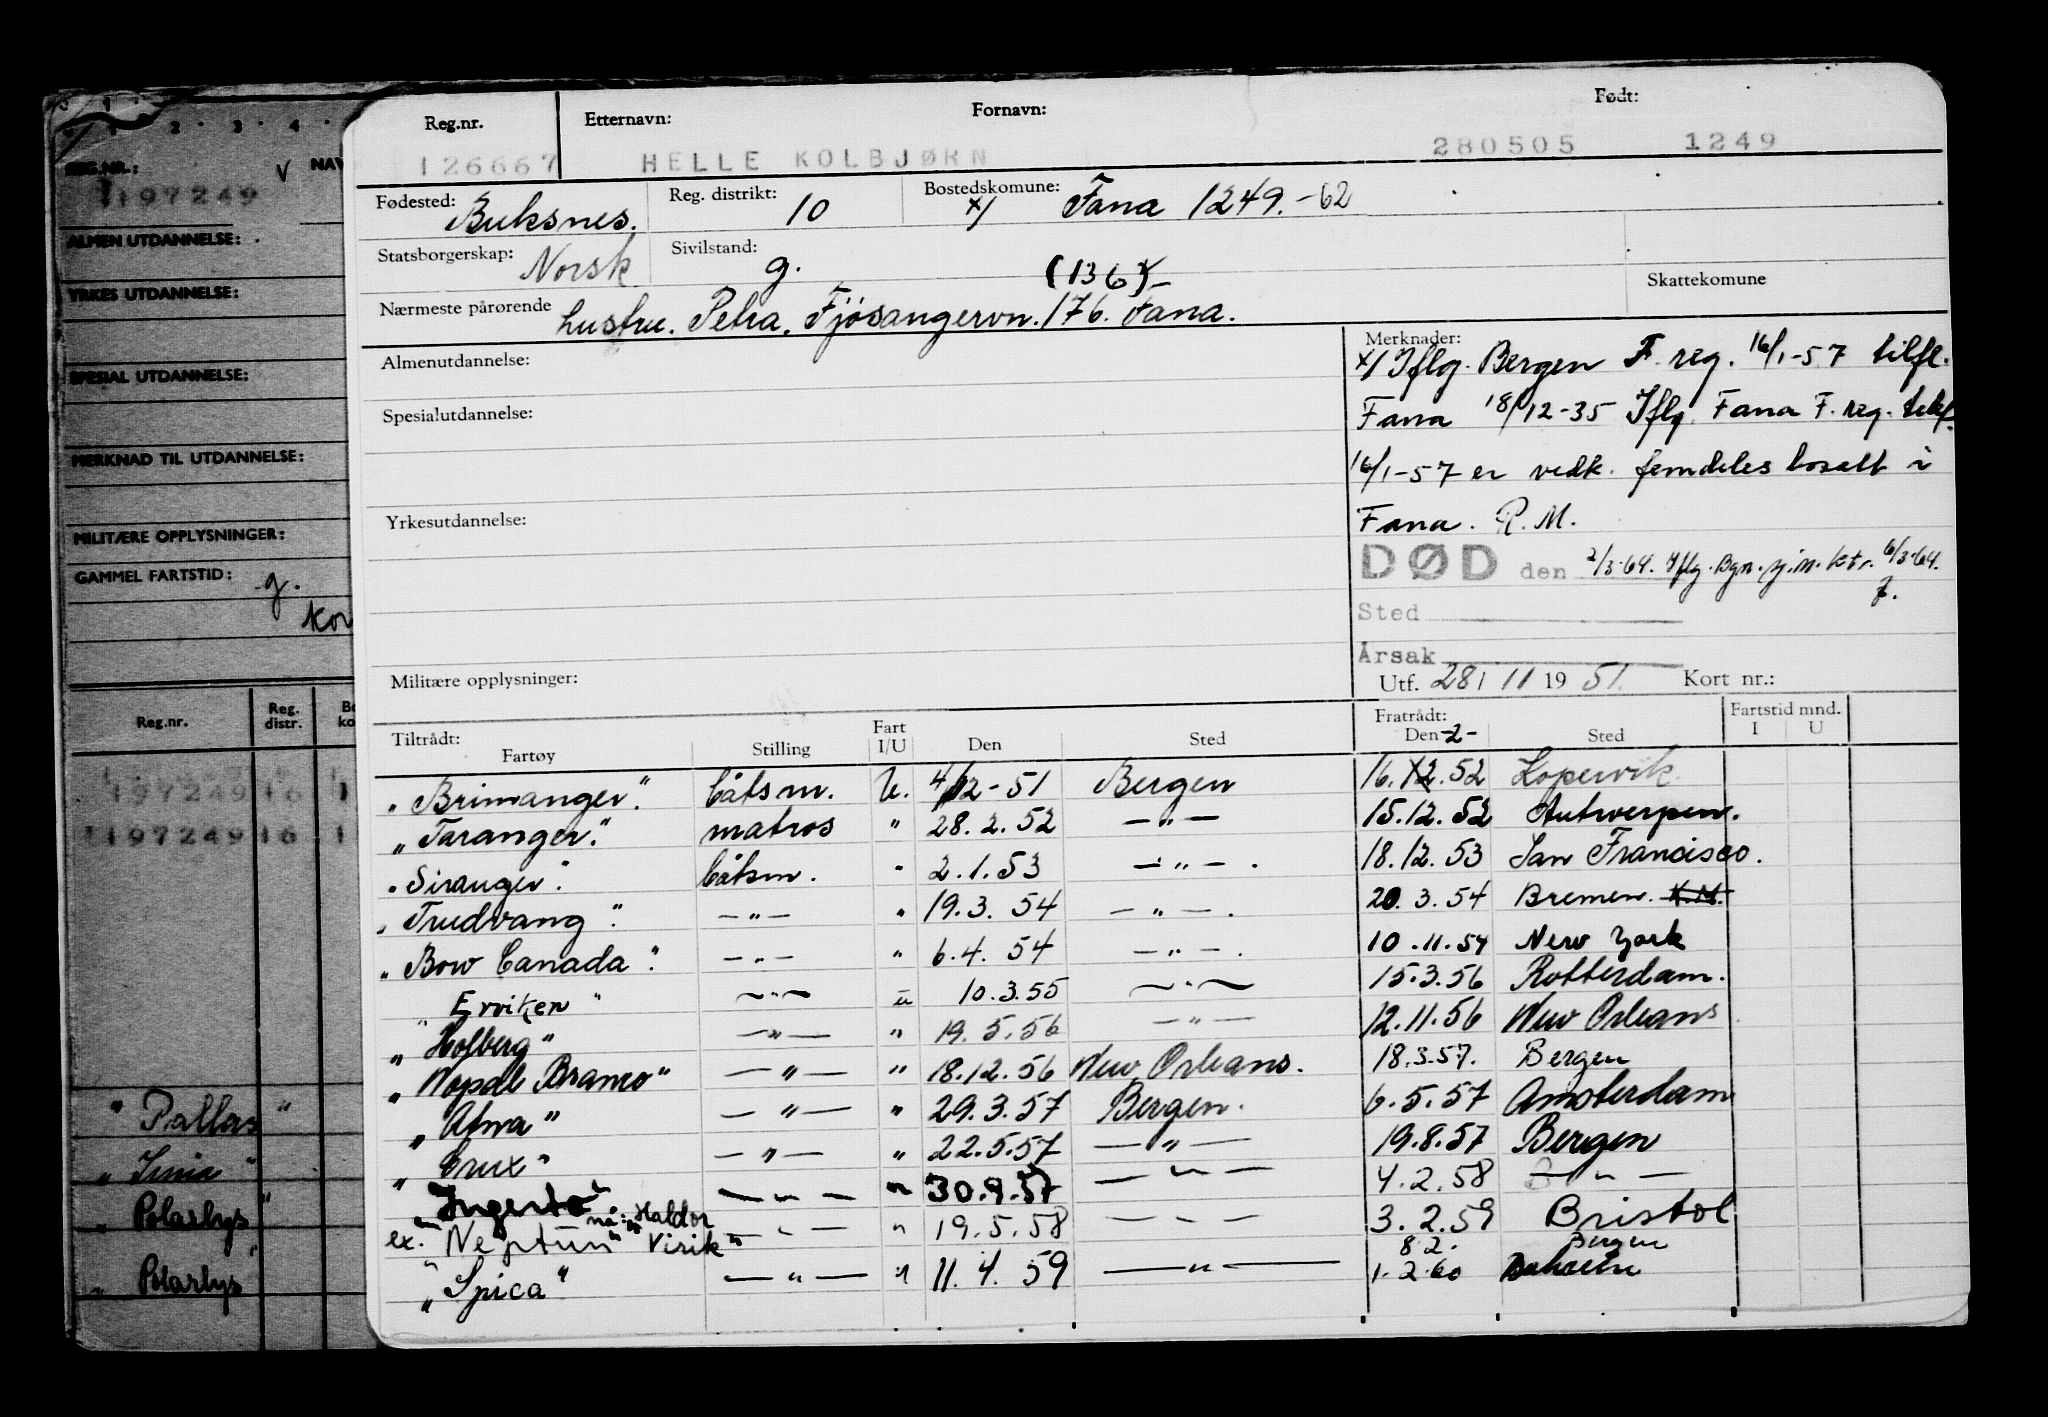 Reg.nr. Etternavn: Fornavn: Født:
126667 HELLE KOLBJØRN 280505 1249
Fødested: Buksnes. Reg. distrikt: 10 Bostedskomune: x/ Fana 1249.-62
Statsborgerskap: Norsk Sivilstand: g. (136) Skattekomune
Nærmeste pårørende hustru. Petra. Fjøsangervn. 176. Fana.
Almenutdannelse:
Spesialutdannelse:
Yrkesutdannelse:
Militære opplysninger:
Merknader:
x/ Iflg. Bergen F. reg. 16/1-57 tilfl.
Fana 18/12-35 Iflg. Fana F. reg. telef.
16/1-57 er vedk. femdeles bosatt i
Fana. R.M.
DØD den 2/3-64. Iflg. Bgn. sj.m. ktr. 6/3-64.
Sted
Årsak
Utf. 28/11 1951. Kort nr.:
Tiltrådt: Fratrådt: Fartstid mnd.
Fartøy Stilling Fart I/U Den Sted Den -2- Sted I U
"Brimanger". båtsm. U. 4/12-51 Bergen 16.12.52 Kopervik
"Taranger". matros " 28.2.52 —"— 15.12.52 Antwerpen.
"Siranger". båtsm. " 2.1.53 —"—. 18.12.53 San Francisco.
"Trudvang". —"— " 19.3.54 —"—. 20.3.54 Bremen.
"Bow Canada". —"— " 6.4.54 —"—. 10.11.54 New York
"Erviken" —"— u 10.3.55 —"— 15.3.56 Rotterdam.
"Holberg" —"— " 19.5.56 —"— 12.11.56 New Orleans
"Nopal Branco" —"— " 18.12.56 New Orleans. 18.3.57. Bergen
"Alma" —"— " 29.3.57 Bergen. 6.5.57 Amsterdam
"Crux" —"— " 22.5.57 —"— 19.8.57 Bergen
"Ingerto" —"— " 30.9.57 —"— 4.2.58 —"—
ex. "Neptun" nå: "Haldor Virik" —"— " 19.5.58 —"— 3.2.59 Bristol
"Spica" —"— " 11.4.59 —"— 1.2.60
8.2. Bergen
1 2 3 4
REG.NR.: V NAV
197249
ALMEN UTDANNELSE:
YRKES UTDANNELSE:
SPESIAL UTDANNELSE:
MERKNAD TIL UTDANNELSE:
MILITÆRE OPPLYSNINGER:
GAMMEL FARTSTID: g.
Kor
Reg.nr. Reg. distr. Bo ko
197249 16 1
197249 16 1
"Pallas"
"Polarlys"
"Polarlys"